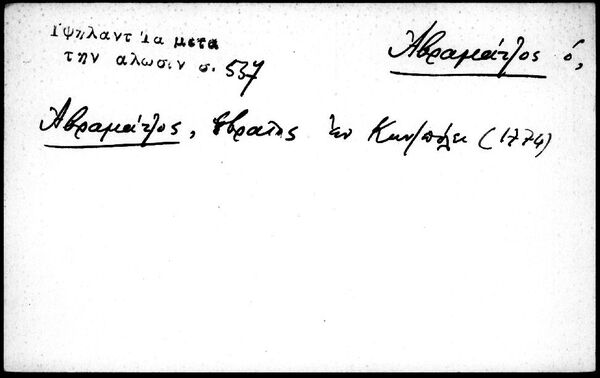 Ὑψηλαντ Ἰα μετα
την αλωσιν σ. 537
Ἀβραμάτζος ὁ,
Ἀβραμάτζος, ἑβραῖος ἐν Κων/πόλει (1774)